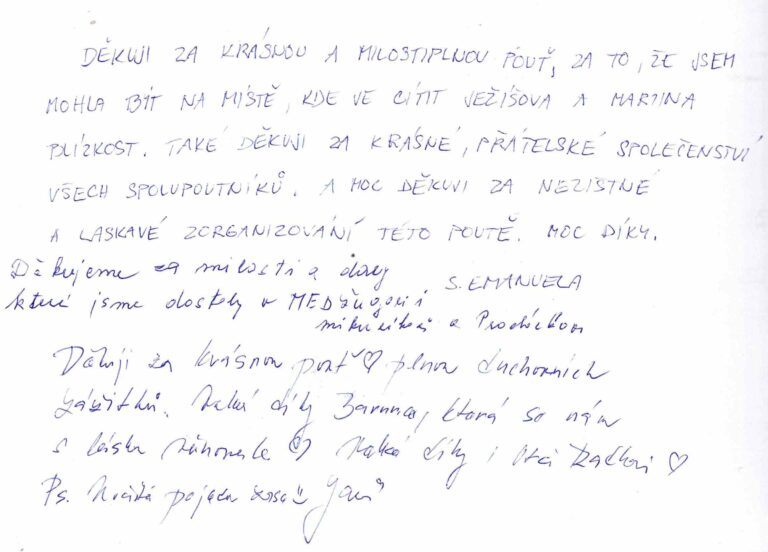 DĚKUJI ZA KRÁSNOU A MILOSTIPLNOU POUŤ, ZA TO, ŽE JSEM
MOHLA BÝT NA MÍSTĚ, KDE VE CÍTIT JEŽÍŠOVA A MARIINA
BLÍZKOST. TAKÉ DĚKUJI ZA KRÁSNÉ, PŘÁTELSKÉ SPOLEČENSTVÍ
VŠECH SPOLUPOUTNÍKŮ. A MOC DĚKUJI ZA NEZIŠTNÉ
A LASKAVÉ ZORGANIZOVÁNÍ TÉTO POUTĚ. MOC DÍKY.
S. EMANUELA
Děkujeme za milosti a dary
které jsme dostaly v MEDžugorji
a
Děkuji za krásnou pouť ♡ plnou duchovních
zážitků. Velké díky která se nám
s láskou věnovala ♡ Velké díky i Otci ♡
Ps. pojedu zase